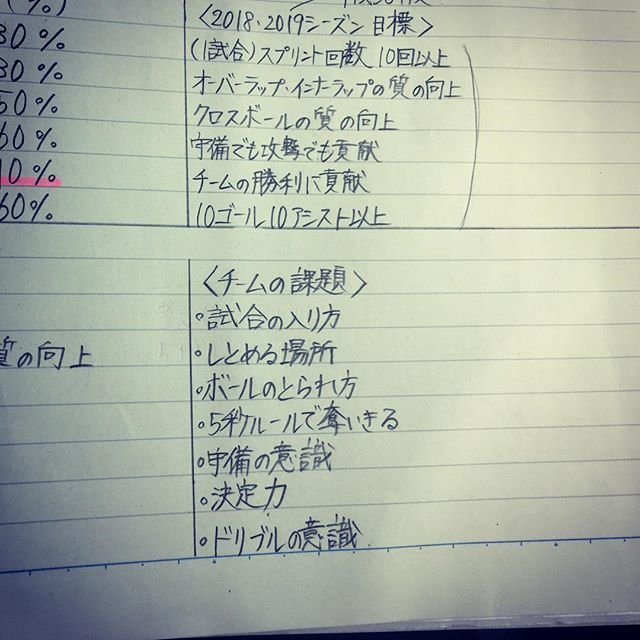 (%)
<2018・2019シーズン目標>
80%
(1試合)スプリント回数 10回以上
80%
オーバーラップ・インナーラップの質の向上
50%
クロスボールの質の向上
60%
守備でも攻撃でも貢献
10%
チームの勝利に貢献
60%
10ゴール10アシスト以上
<チームの課題>
・試合の入り方
・しとめる場所
質の向上
・ボールのとられ方
・5秒ルールで奪いきる
・守備の意識
・決定力
・ドリブルの意識